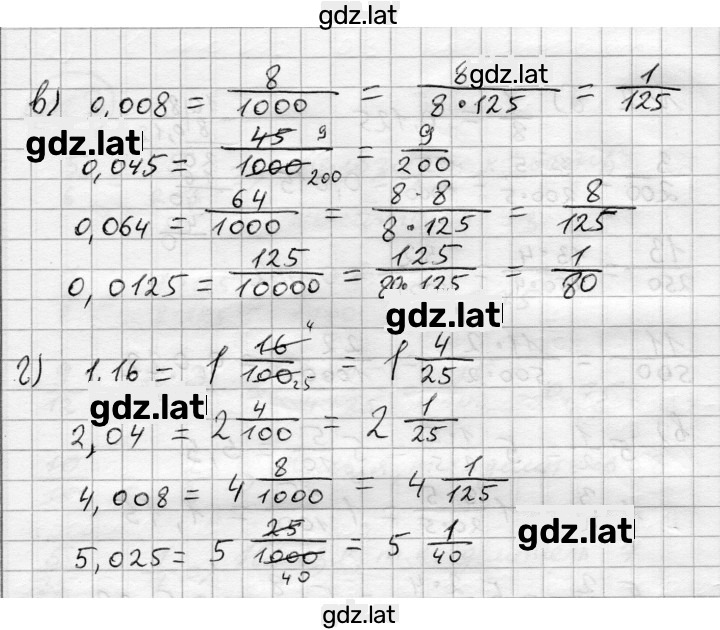 gdz.lat
в) 0,008 = 8/1000 = 8/(8·125) = 1/125
gdz.lat
gdz.lat
0,045 = 45/1000 9 200 = 9/200
0,064 = 64/1000 = 8·8/(8·125) = 8/125
0,0125 = 125/10000 = 125/(80·125) = 1/80
gdz.lat
г) 1,16 = 1 16/100 4 25 = 1 4/25
gdz.lat
2,04 = 2 4/100 = 2 1/25
4,008 = 4 8/1000 = 4 1/125
gdz.lat
5,025 = 5 25/1000 40 = 5 1/40
gdz.lat